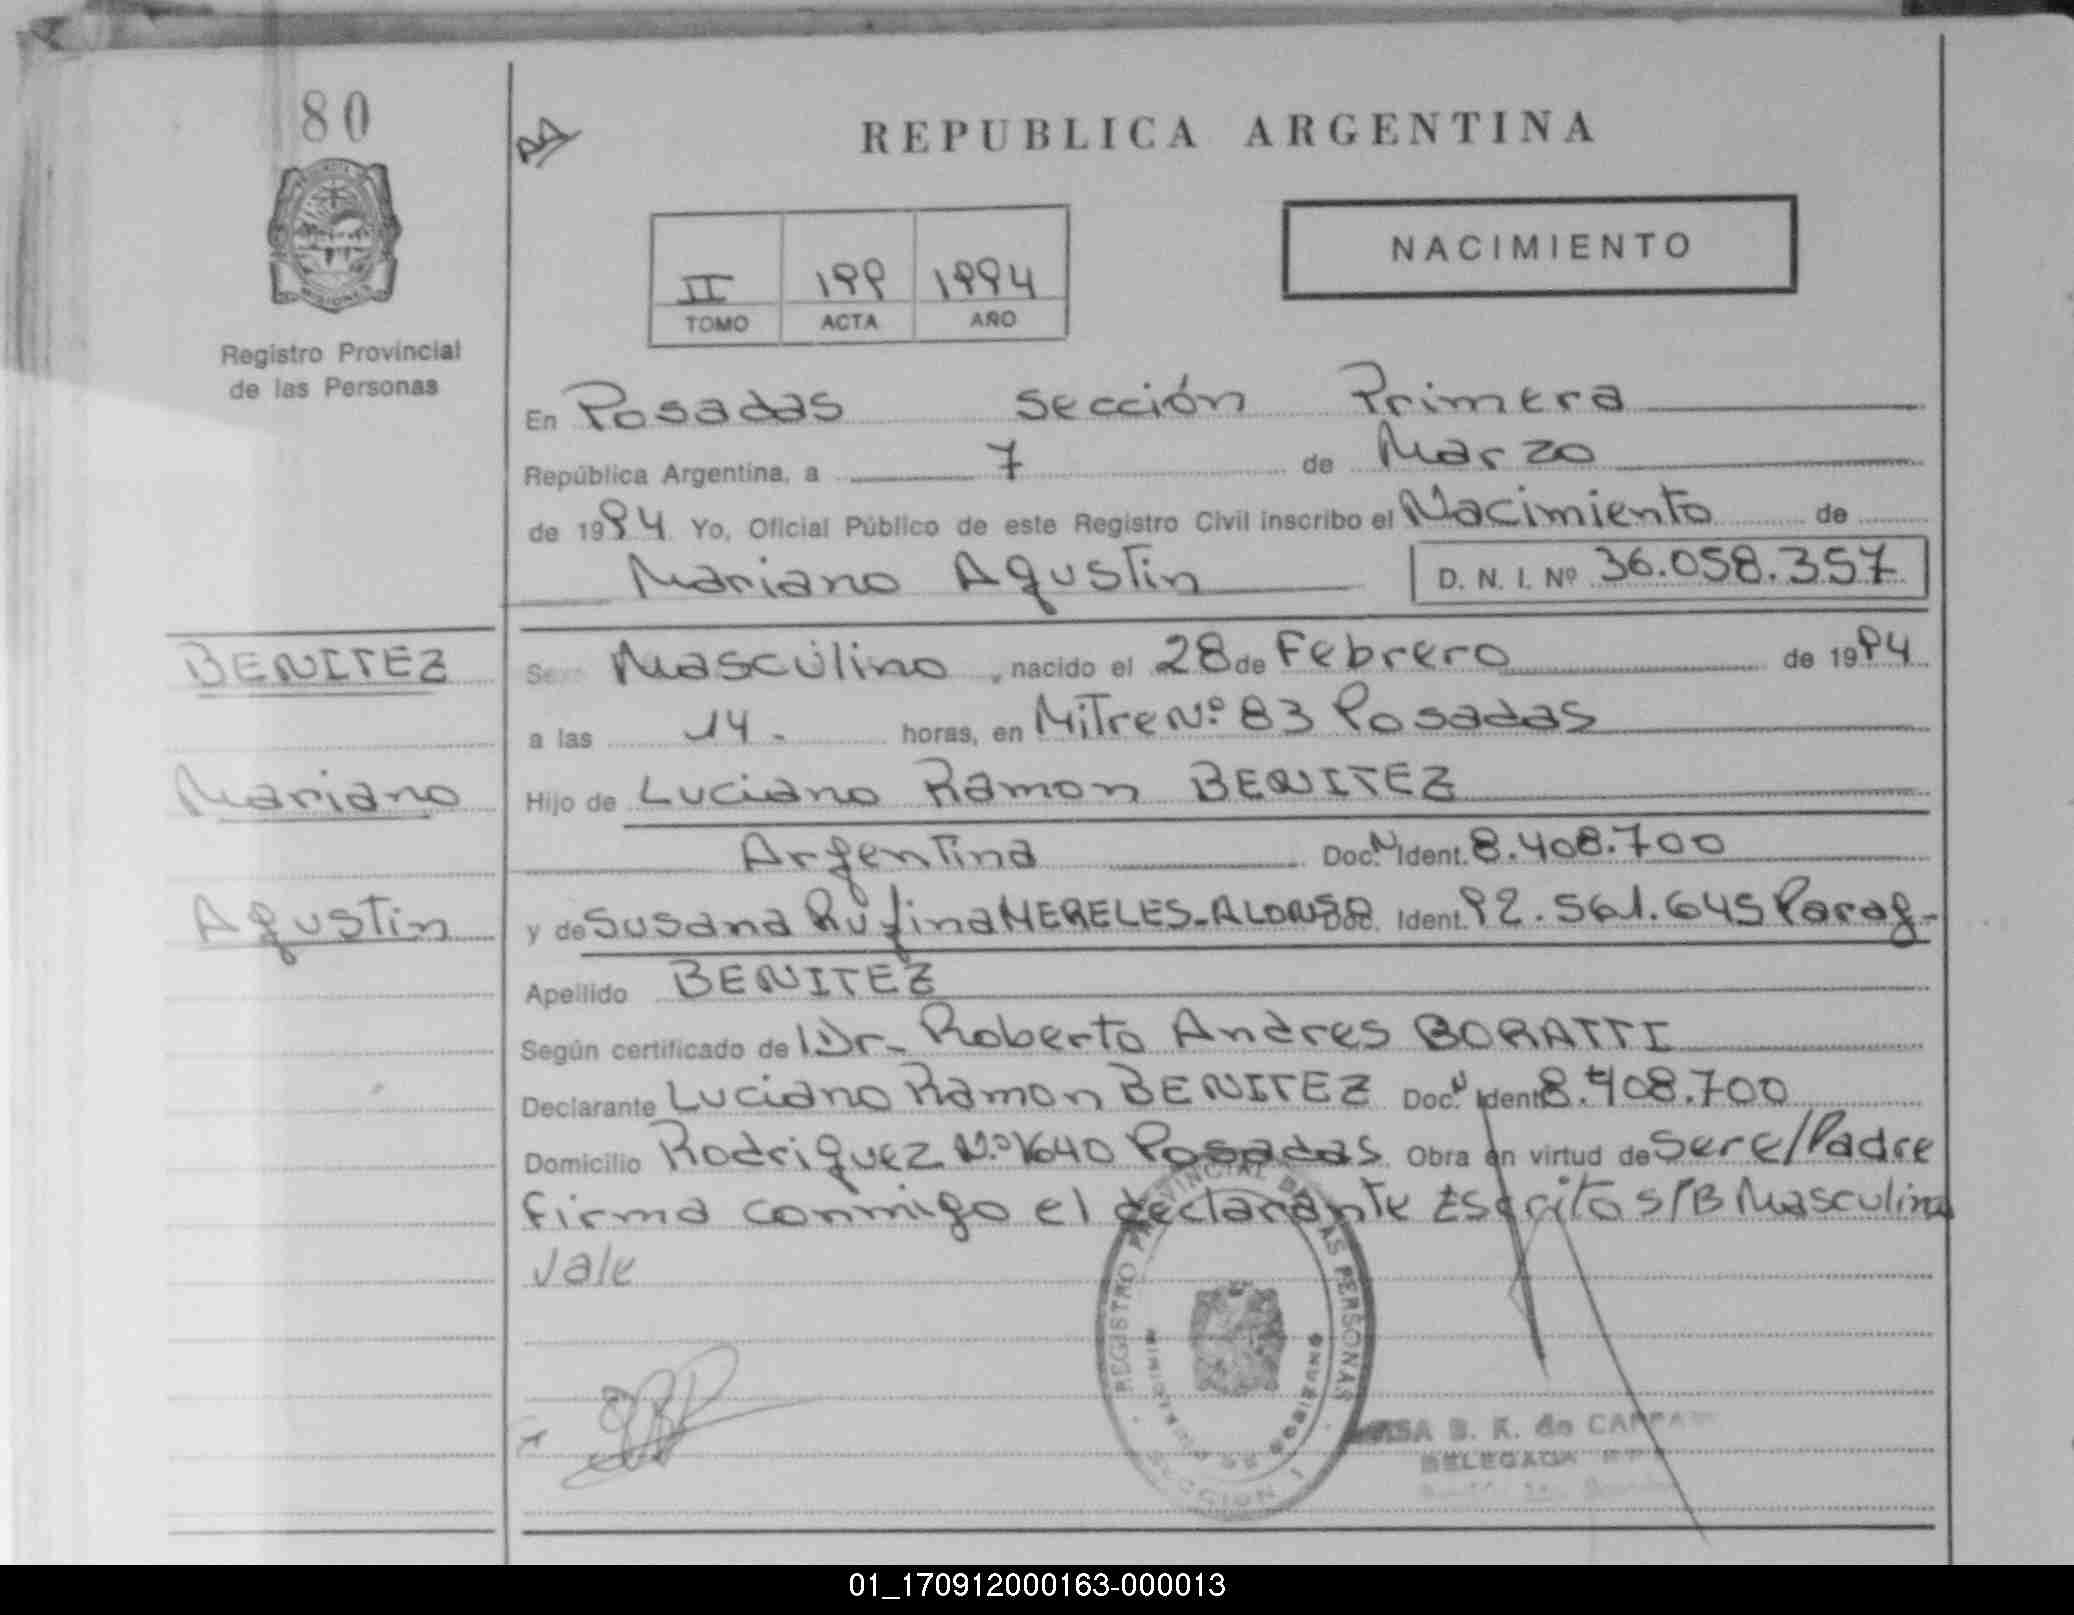 80
AA
REPUBLICA ARGENTINA
NACIMIENTO
II 199 1994
TOMO ACTA AÑO
MISIONES
Registro Provincial
de las Personas
En Posadas sección Primera
República Argentina, a 7 de Marzo
de 1994 Yo, Oficial Público de este Registro Civil inscribo el Nacimiento de
Mariano Agustin D. N. I. Nº 36.058.357
BENITEZ
Mariano
Agustin
Sexo Masculino, nacido el 28 de Febrero de 1994
a las 14. horas, en Mitre Nº 83 Posadas
Hijo de Luciano Ramon BENITEZ
Argentina Doc. N Ident. 8.408.700
y de Susana Rufina MERELES-ALONSO Doc. Ident. 92.561.645 Parag-
Apellido BENITEZ
Según certificado de Dr- Roberto Andres BORATTI
Declarante Luciano Ramon BENITEZ Doc. N Ident 8.408.700
Domicilio Rodriguez Nº 1640 Posadas Obra en virtud de Sere/Padre
firma conmigo el declarante Escrito S/B Masculino
Vale
REGISTRO PROVINCIAL DE LAS PERSONAS
SECCION I
B. K. de
DELEGADA
01_170912000163-000013